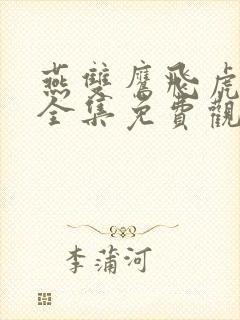 燕雙鷹飛虎
全集免費觀
李蒲河